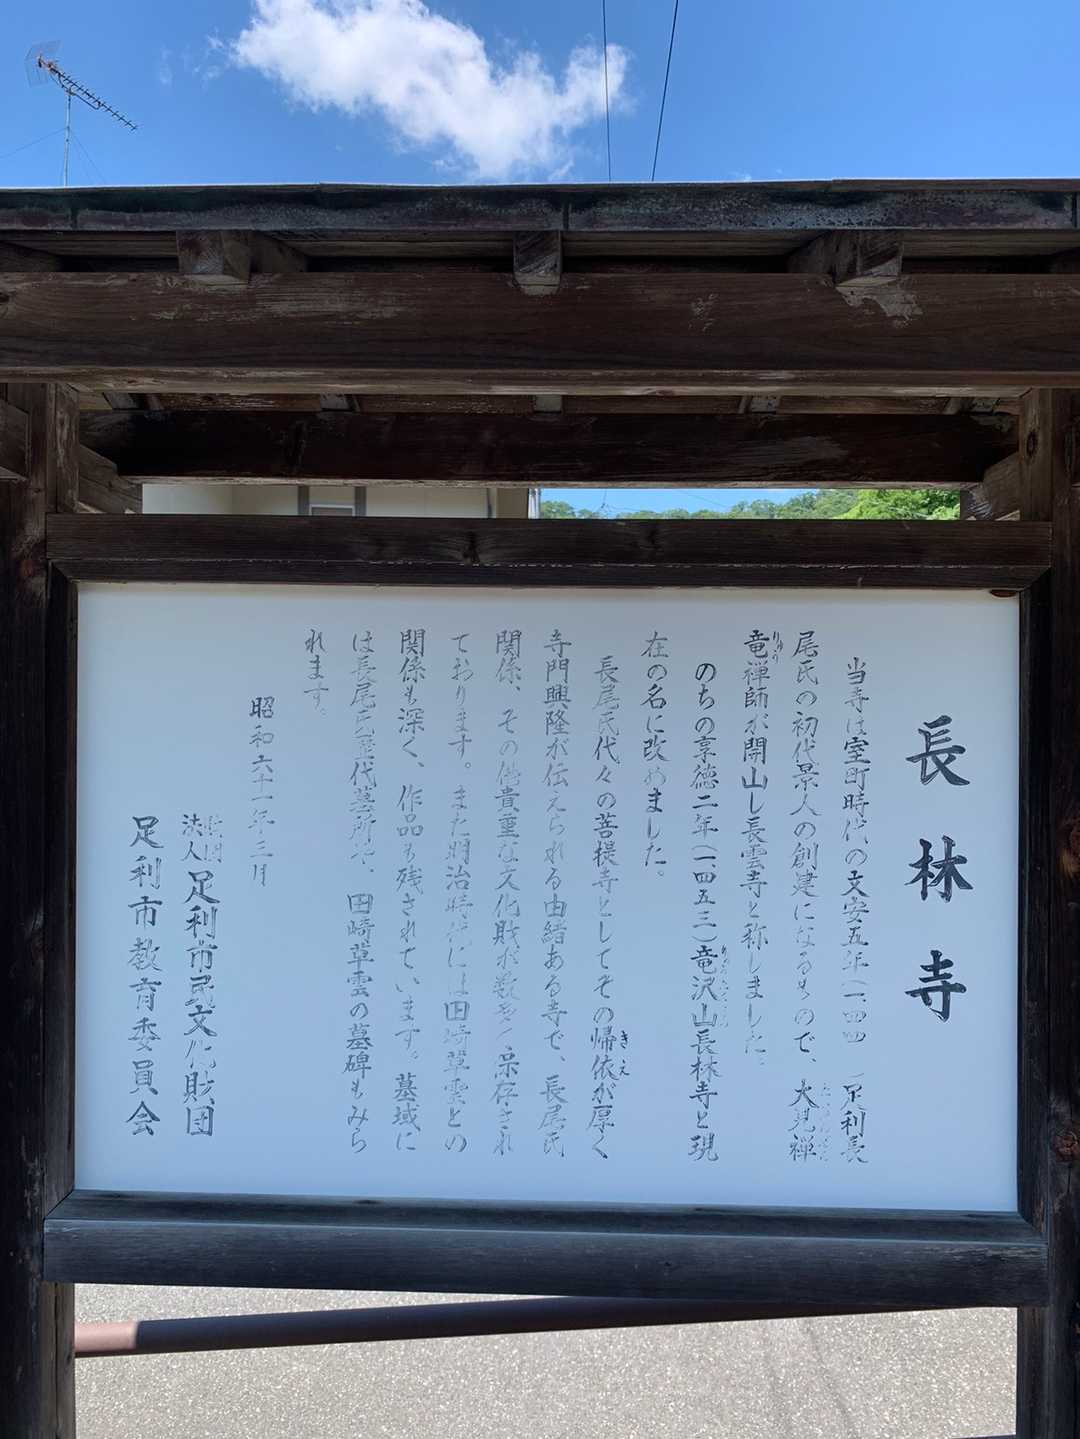 長林寺
当寺は室町時代の文安五年(一四四 )足利長
尾氏の初代景人の創建になるもので、大見禅
竜禅師が開山し長雲寺と称しました。
りゅう
のちの享徳二年(一四五三)竜沢山長林寺と現
在の名に改めました。
長尾氏代々の菩提寺としてその帰依が厚く
きえ
寺門興隆が伝えられる由緒ある寺で、長尾氏
関係、その他貴重な文化財が数多く保存され
ております。また明治時代には田崎草雲との
関係も深く、作品も残されています。墓域に
は長尾氏歴代墓所や、田崎草雲の墓碑もみら
れます。
昭和六十一年三月
財団
法人足利市民文化財団
足利市教育委員会